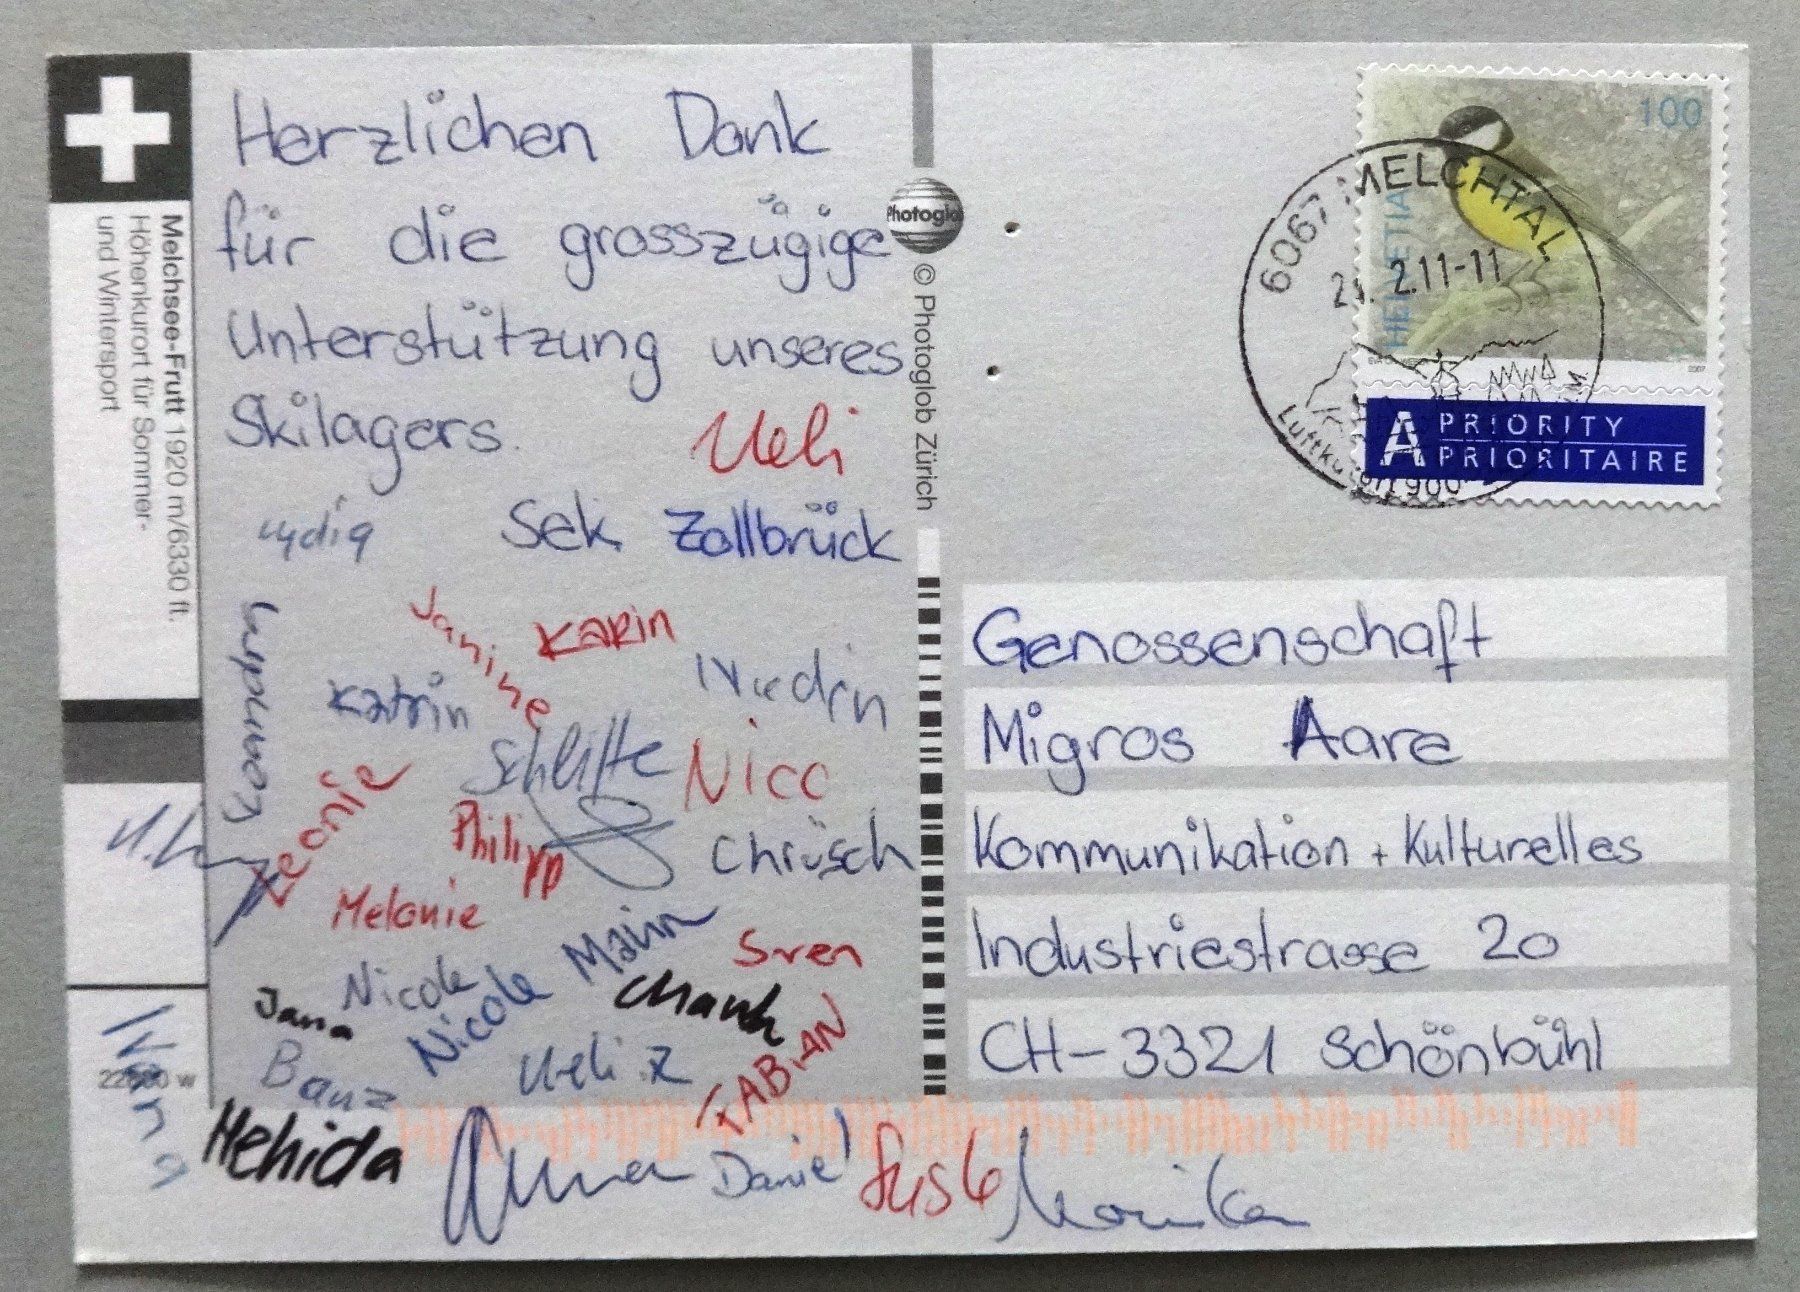 Melchsee-Frutt 1920 m/6330 ft.
Höhenkurort für Sommer-
und Wintersport
Herzlichen Dank
für die grosszügige
Unterstützung unseres
Skilagers.
Ueli
Sek. Zollbrück
Janine
Karin
Katrin
Nico
Leonie
Philipp
Chrüsch
Melanie
Sven
Nicole
Nicole
Jana
Banz
Ueli Z
FABIAN
Mehida
Daniel
Monika
Photoglob
© Photoglob Zürich
100
HELVETIA
2007
A PRIORITY
PRIORITAIRE
6067 MELCHTAL
2.11-11
Genossenschaft
Migros Aare
Kommunikation + Kulturelles
Industriestrasse 20
CH-3321 Schönbühl